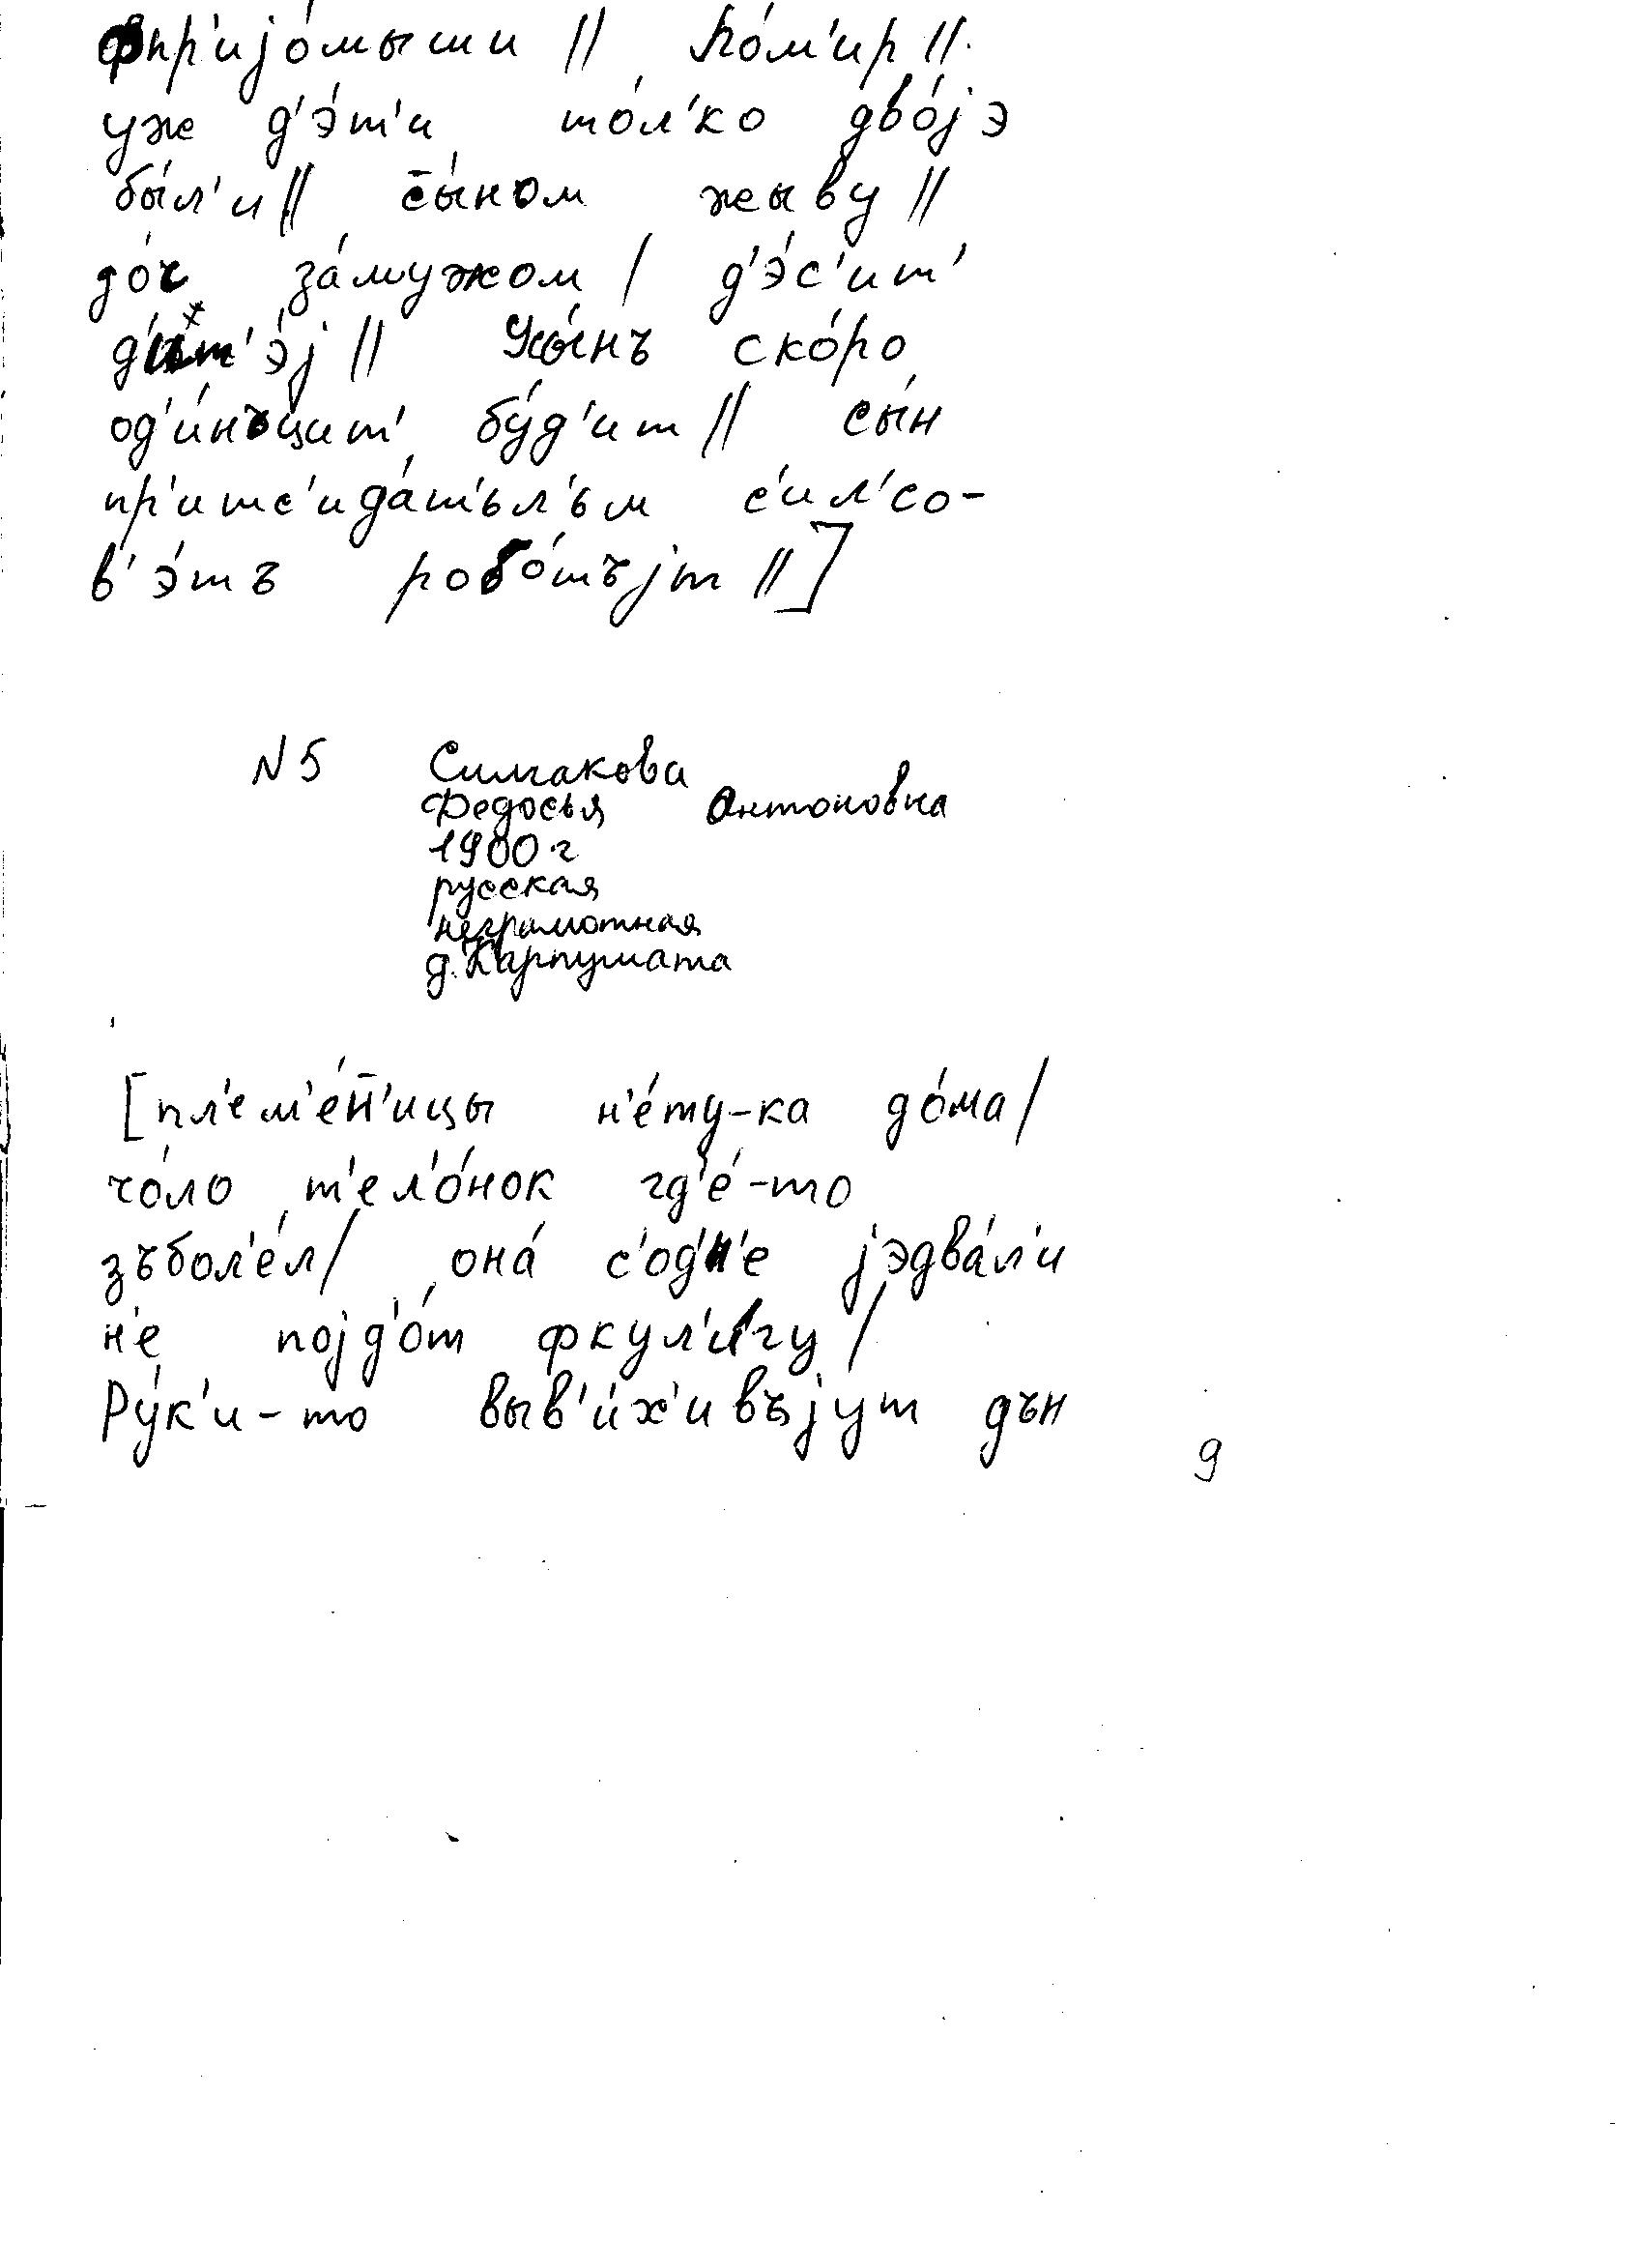 фпр'ијо́мыши || по́м'ир ||
уже д'э́т'и то́л'ко дво́јэ
бы́л'и || с̄ы́ном жыву ||
до́ч за́мужом / д'э́с'ит'
д'ит'э́ј || скóро
од'и́нъцит' бу́д'ит || сы́н
пр'итс'ида́т'ьл'ьм с'ил'со-
в'э́тъ робо́тъјт || ]
N 5 Симакова
Федосья Антоновна
1900 г
русская
неграмотная
д. Карпушата
[ пл'ем'е́н̄'ицы н'е́ту-ка до́ма /
чо́ло т'ел'о́нок гд'е́-то
зъбол'е́л / она́ с'одн'е јэдва́л'и
н'е појд'о́т фкул'и́гу /
Ру́к'и-то выв'и́х'ивъјут дън
9